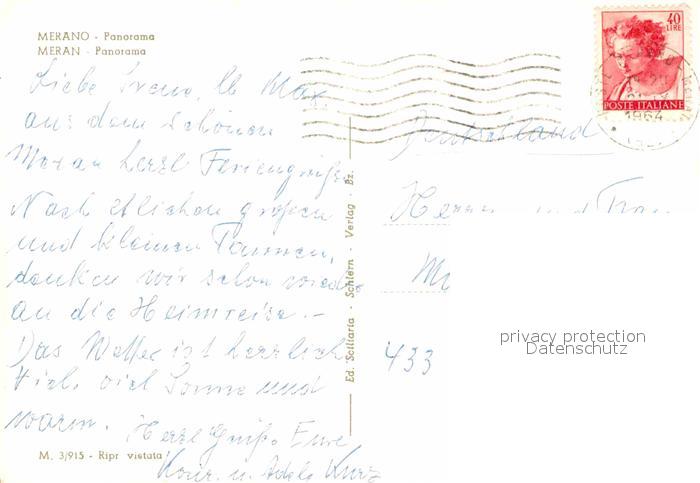 MERANO - Panorama
MERAN - Panorama
40
LIRE
POSTE ITALIANE
1964
Liebe Irene, lb Max
aus dem schönen
Meran herzl Feriengrüße
Nach etlichen großen
und kleinen Touren,
denken wir schon wieder
an die Heimreise. -
Das Wetter ist herrlich
viel, viel Sonne und
warm. Herzl Grüße Eure
u. Adele Kurz
Deutschland
Herrn und Frau
433
privacy protection
Datenschutz
Ed. Solitaria - Schlern - Verlag - Bz.
M. 3/915 - Ripr vietata